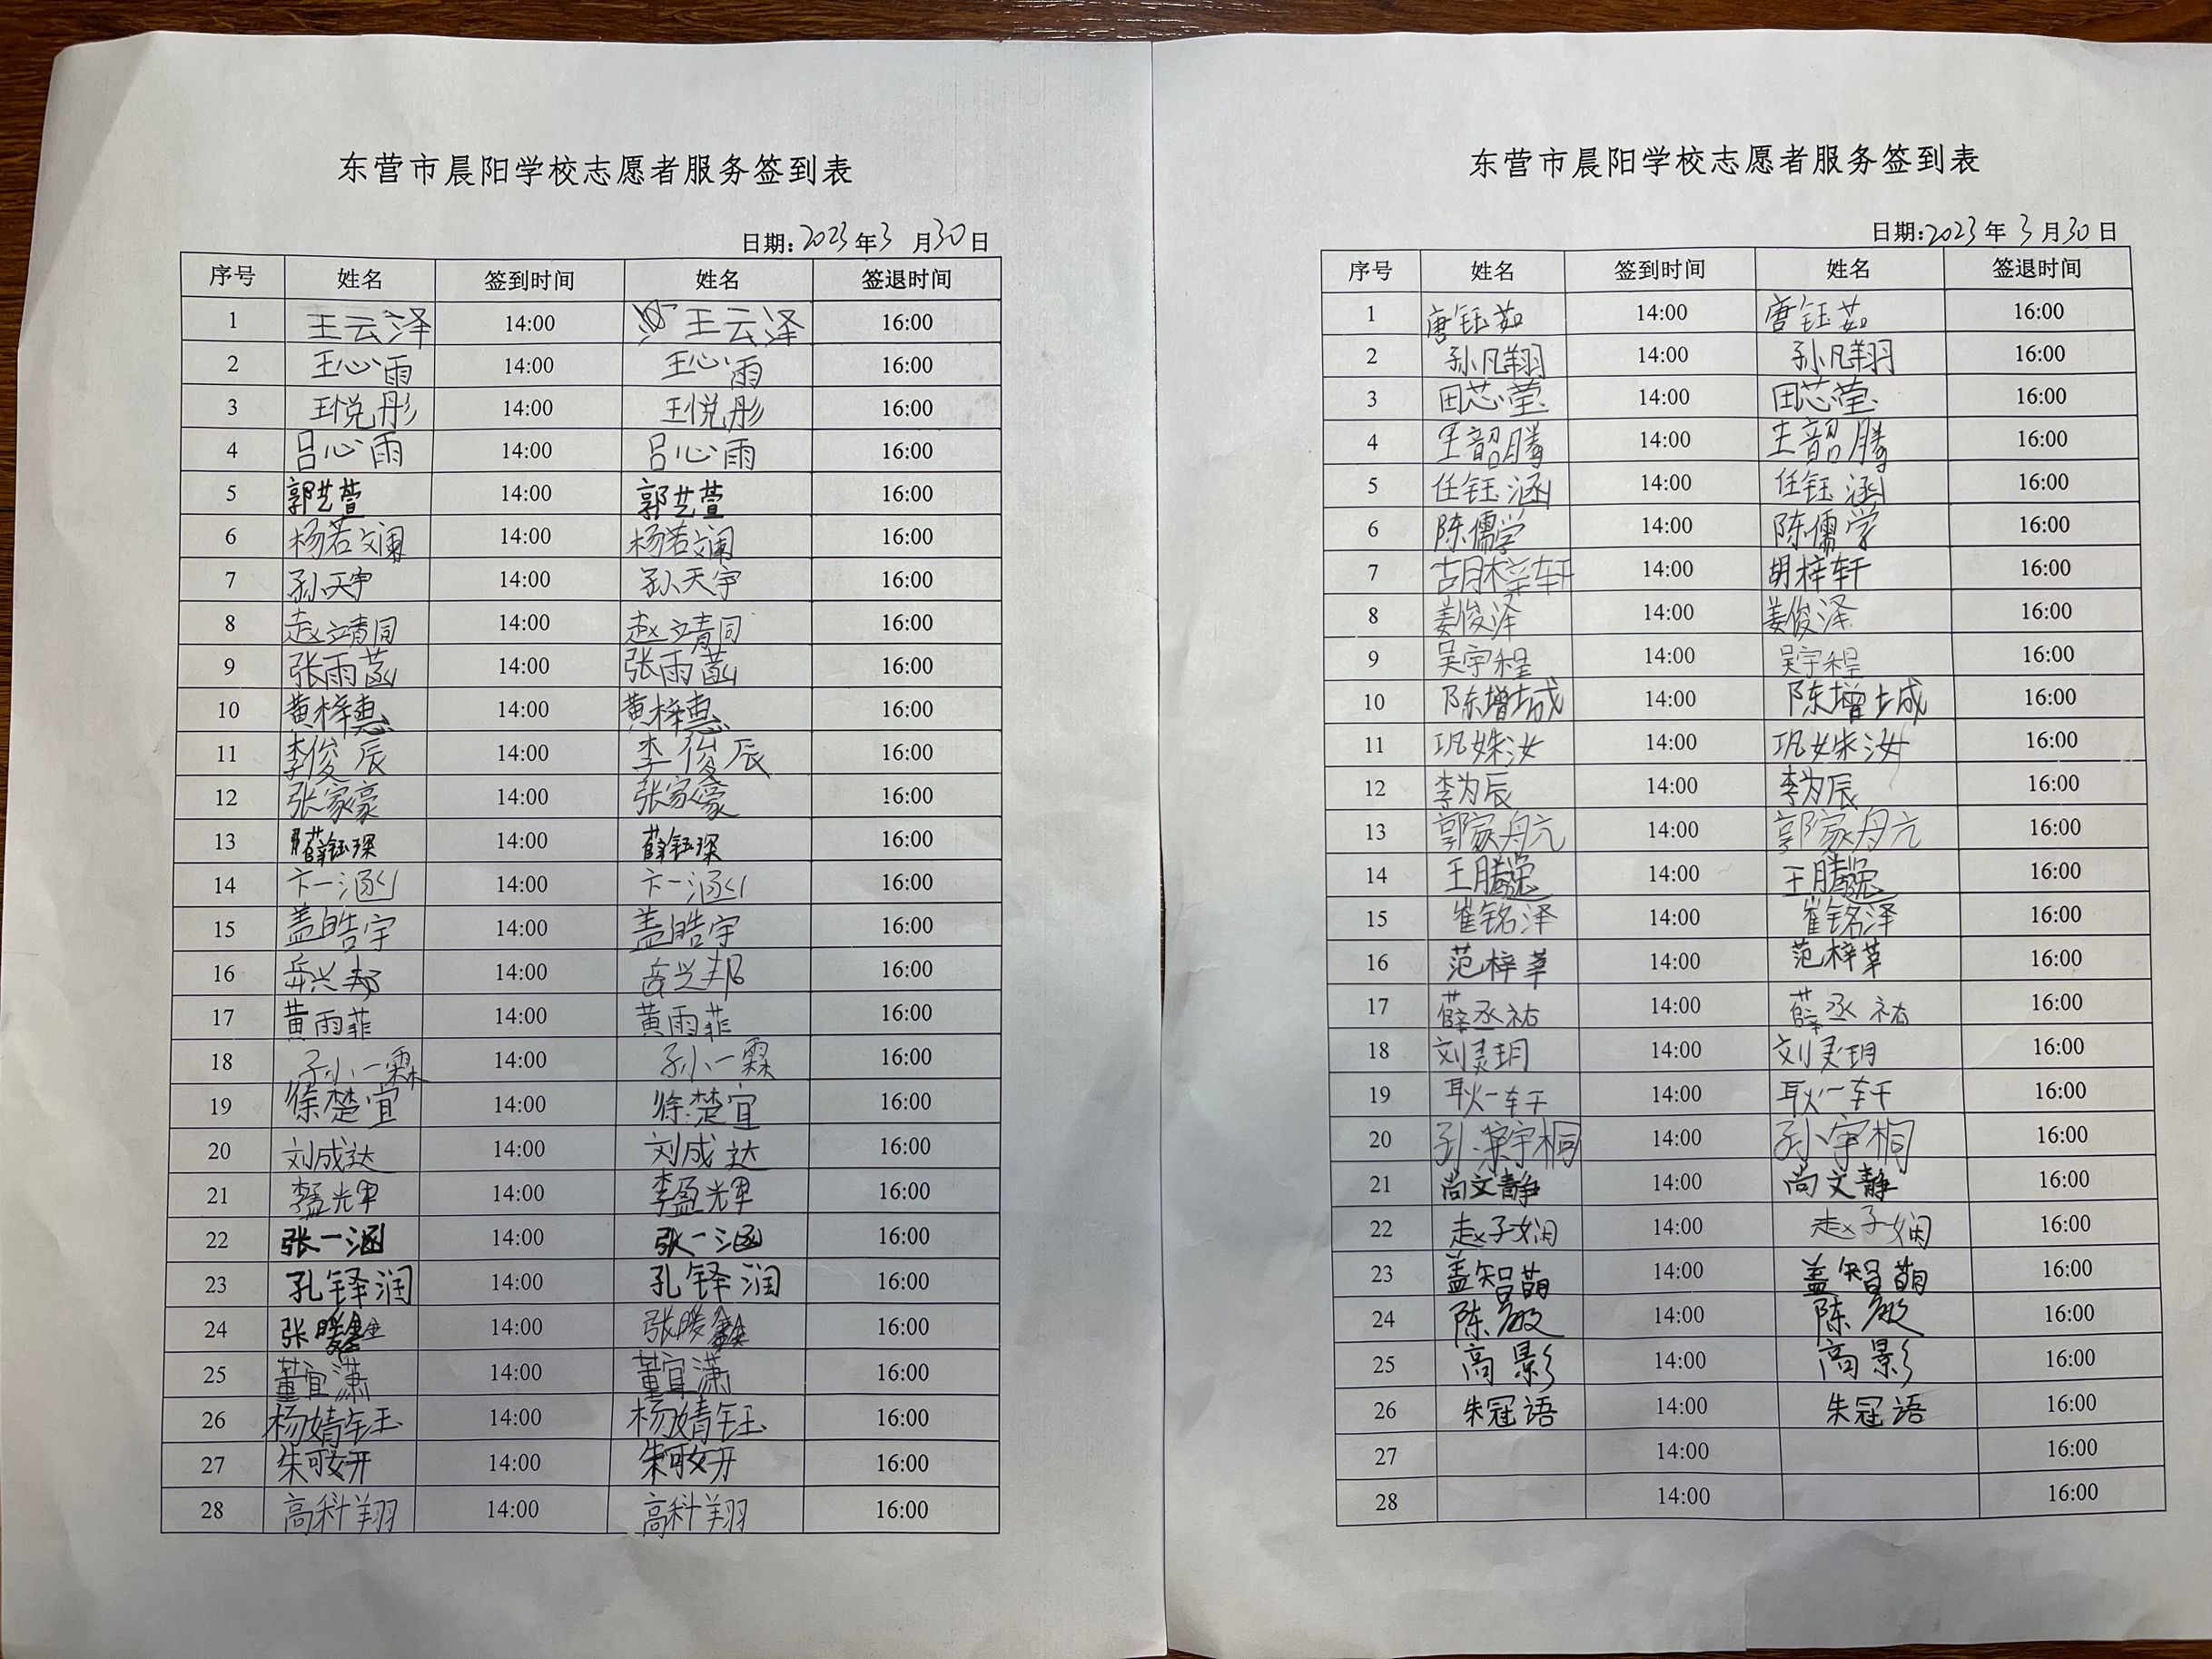 东营市晨阳学校志愿者服务签到表
日期:2023年3月30日
序号 姓名 签到时间 姓名 签退时间
1 王云泽 14:00 王云泽 16:00
2 王心雨 14:00 王心雨 16:00
3 王悦彤 14:00 王悦彤 16:00
4 吕心雨 14:00 吕心雨 16:00
5 郭艺萱 14:00 郭艺萱 16:00
6 杨若斓 14:00 杨若斓 16:00
7 孙天宇 14:00 孙天宇 16:00
8 赵靖同 14:00 赵靖同 16:00
9 张雨菡 14:00 张雨菡 16:00
10 黄梓惠 14:00 黄梓惠 16:00
11 李俊辰 14:00 李俊辰 16:00
12 张家豪 14:00 张家豪 16:00
13 薛钰琛 14:00 薛钰琛 16:00
14 卞一涵 14:00 卞一涵 16:00
15 盖皓宇 14:00 盖皓宇 16:00
16 岳兴邦 14:00 岳兴邦 16:00
17 黄雨菲 14:00 黄雨菲 16:00
18 孙一霖 14:00 孙一霖 16:00
19 徐楚宜 14:00 徐楚宜 16:00
20 刘成达 14:00 刘成达 16:00
21 李盈光军 14:00 李盈光军 16:00
22 张一涵 14:00 张一涵 16:00
23 孔铎润 14:00 孔铎润 16:00
24 张 14:00 张 16:00
25 董宜潇 14:00 董宜潇 16:00
26 杨婧钰 14:00 杨婧钰 16:00
27 朱可妍 14:00 朱可妍 16:00
28 高科翔 14:00 高科翔 16:00
东营市晨阳学校志愿者服务签到表
日期:2023年3月30日
序号 姓名 签到时间 姓名 签退时间
1 唐钰茹 14:00 唐钰茹 16:00
2 孙凡翔 14:00 孙凡翔 16:00
3 田芯莹 14:00 田芯莹 16:00
4 王韶腾 14:00 王韶腾 16:00
5 任钰涵 14:00 任钰涵 16:00
6 陈儒学 14:00 陈儒学 16:00
7 胡梓轩 14:00 胡梓轩 16:00
8 姜俊泽 14:00 姜俊泽 16:00
9 吴宇程 14:00 吴宇程 16:00
10 陈增城 14:00 陈增城 16:00
11 巩姝汝 14:00 巩姝汝 16:00
12 李为辰 14:00 李为辰 16:00
13 郭家亢 14:00 郭家亢 16:00
14 王腾 14:00 王腾 16:00
15 崔铭泽 14:00 崔铭泽 16:00
16 范梓莘 14:00 范梓莘 16:00
17 薛丞祐 14:00 薛丞祐 16:00
18 刘灵玥 14:00 刘灵玥 16:00
19 耿一轩 14:00 耿一轩 16:00
20 孙宇桐 14:00 孙宇桐 16:00
21 尚文静 14:00 尚文静 16:00
22 赵子娴 14:00 赵子娴 16:00
23 盖智萌 14:00 盖智萌 16:00
24 陈 14:00 陈 16:00
25 高影 14:00 高影 16:00
26 朱冠语 14:00 朱冠语 16:00
27 14:00 16:00
28 14:00 16:00